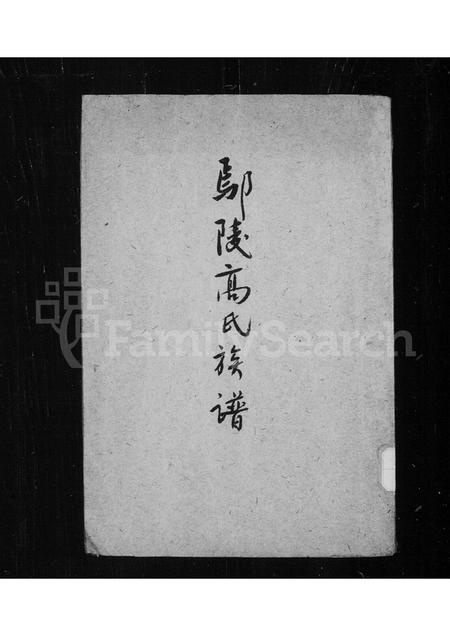 鄢陵高氏族譜
FamilySearch